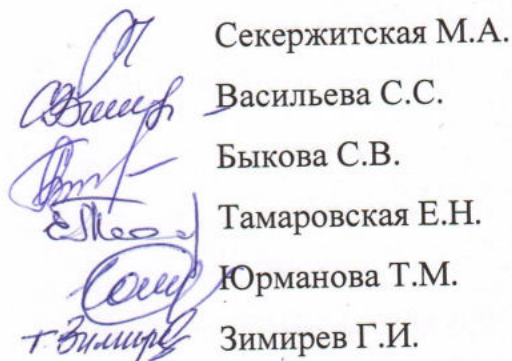 Секержитская М.А.
Васильева С.С.
Быкова С.В.
Тамаровская Е.Н.
Юрманова Т.М.
Зимирев Г.И.